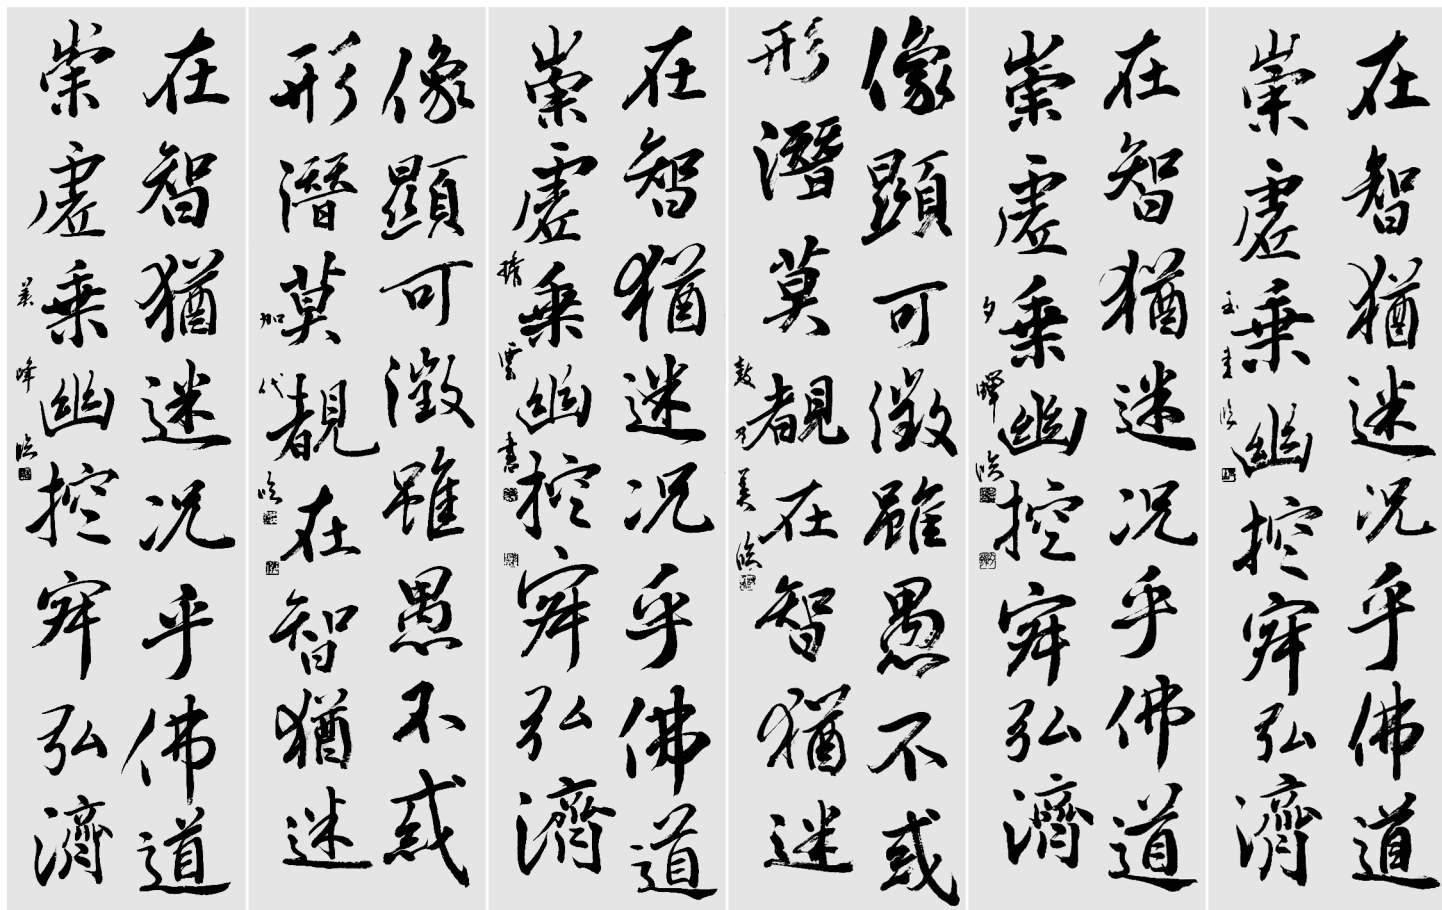 在智猶迷况乎佛道
崇虛乗幽控寂弘濟
臨
在智猶迷况乎佛道
崇虛乗幽控寂弘濟
夕暉臨
像顯可徵雖愚不惑
形潛莫覩在智猶迷
美臨
在智猶迷况乎佛道
崇虛乗幽控寂弘濟
雲書
像顯可徵雖愚不惑
形潛莫覩在智猶迷
加代臨
在智猶迷况乎佛道
崇虛乗幽控寂弘濟
峰臨